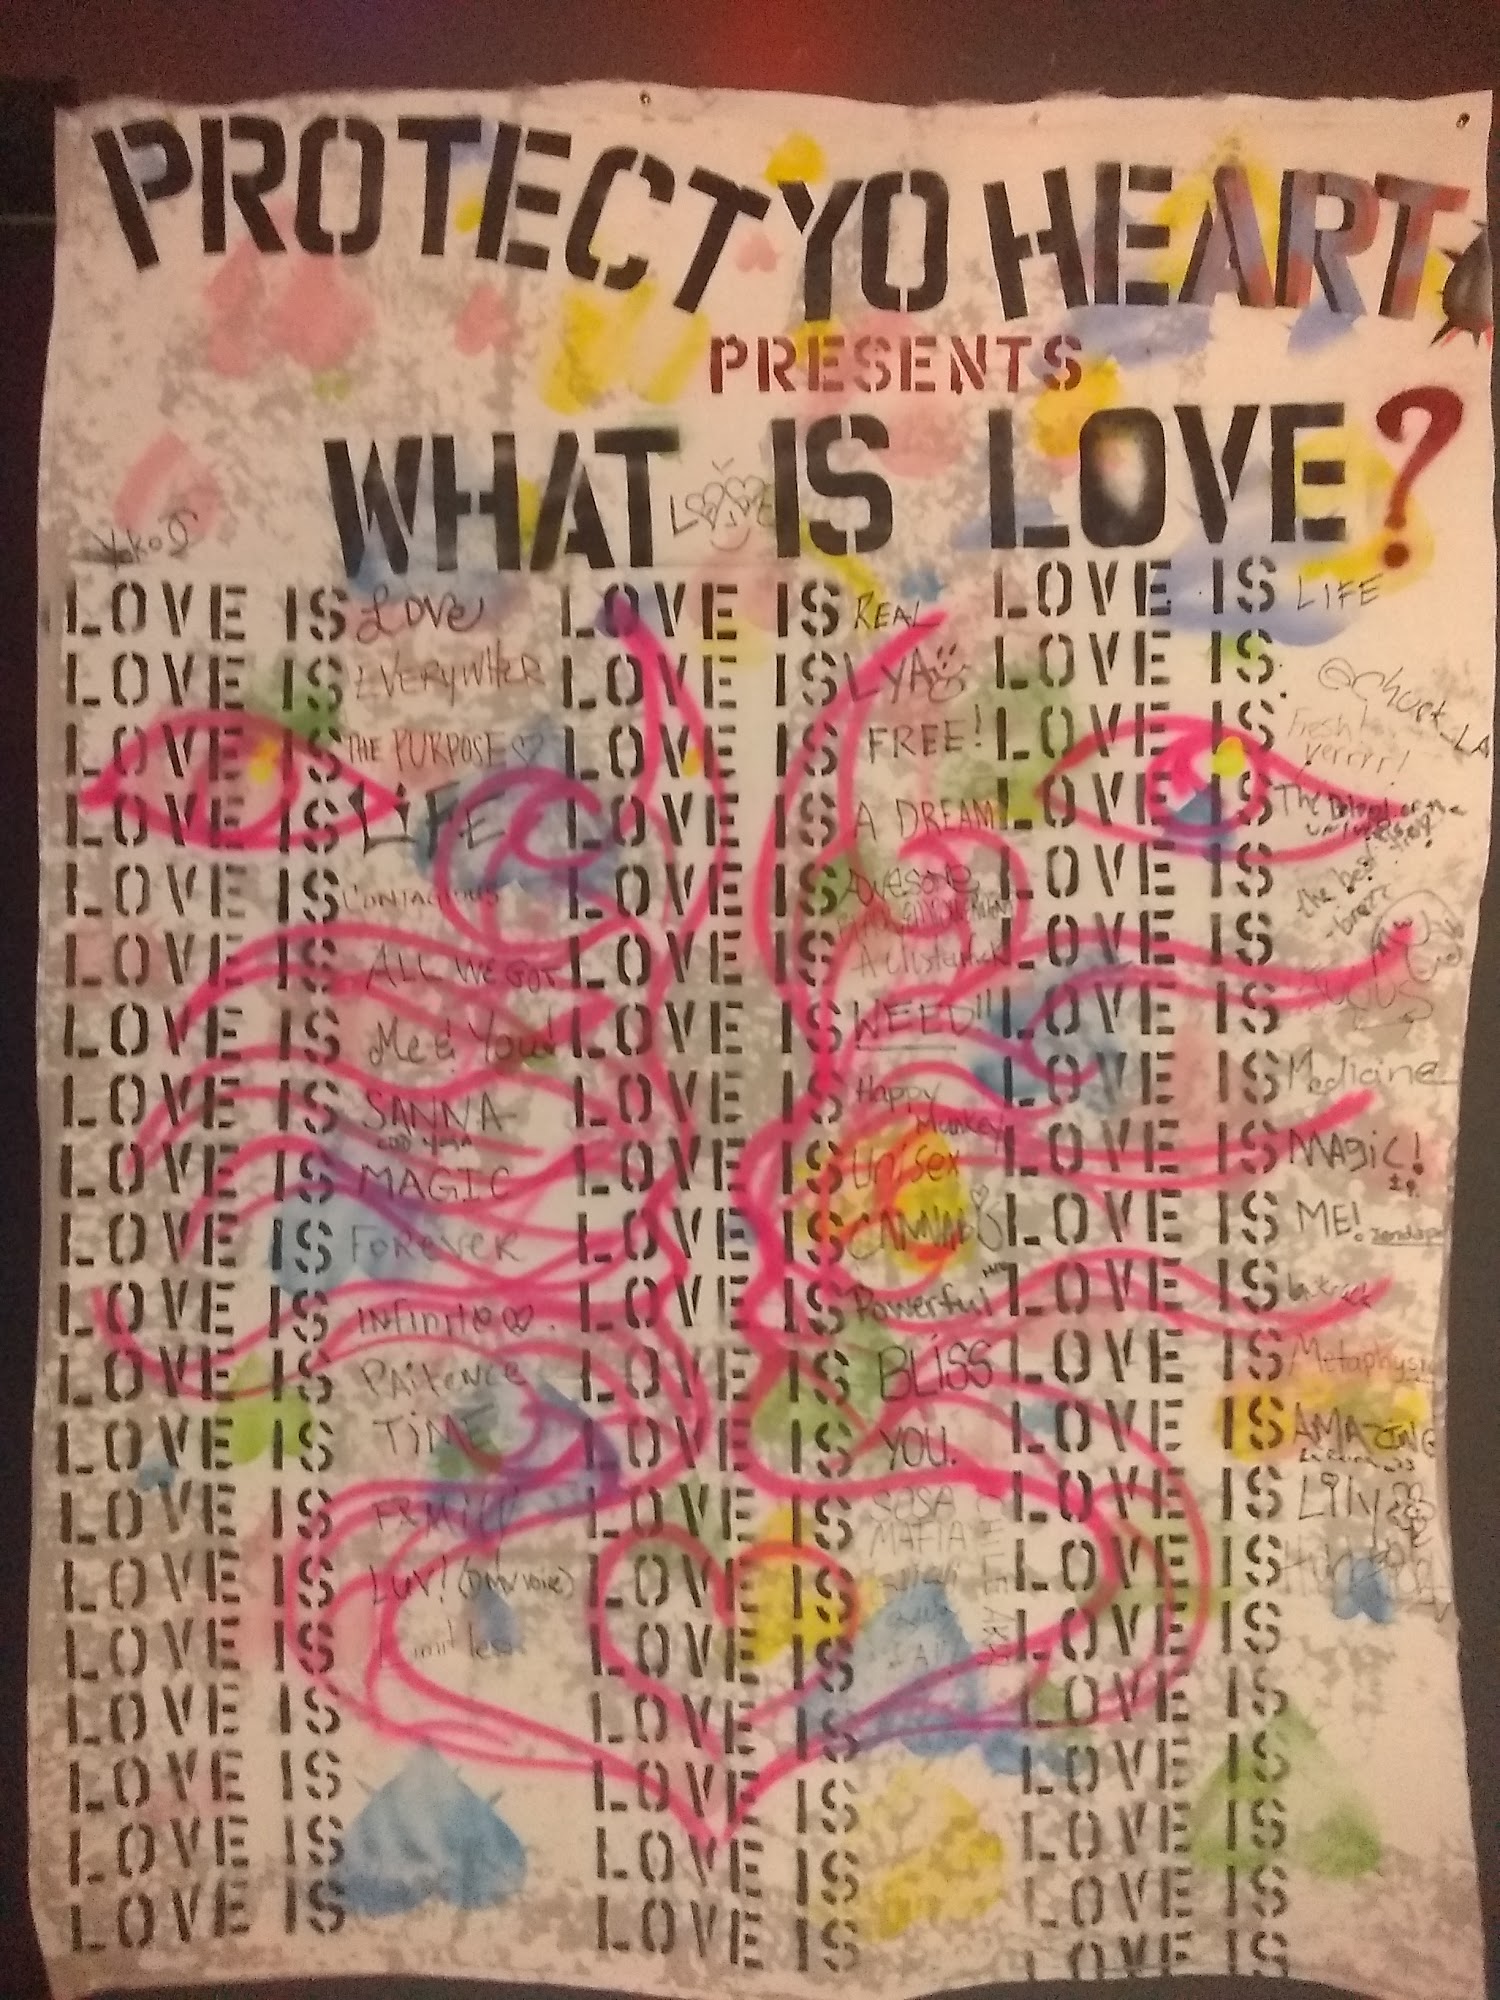 PROTECT YO HEART
PRESENTS
WHAT IS LOVE?
LOVE IS LOVE
LOVE IS EVERYWHER
LOVE IS THE PURPOSE
LOVE IS LIFE
LOVE IS CONTAGIOUS
LOVE IS ALL WE GOT
LOVE IS Me & You!
LOVE IS SANNA
LOVE IS MAGIC
LOVE IS FOREVER
LOVE IS infinite
LOVE IS PAiTENCE
LOVE IS TiME
LOVE IS FAMILY
LOVE IS LUV!
LOVE IS Limitless
LOVE IS
LOVE IS
LOVE IS
LOVE IS
LOVE IS REAL
LOVE IS LYA
LOVE IS FREE!
LOVE IS A DREAM
LOVE IS Awesome
LOVE IS A
LOVE IS WEED!!
LOVE IS Happy Munkey
LOVE IS Unisex
LOVE IS CANNABIS
LOVE IS Powerful
LOVE IS BLiSS
LOVE IS YOU.
LOVE IS SOSA MAFIA
LOVE IS
LOVE IS
LOVE IS
LOVE IS
LOVE IS
LOVE IS
LOVE IS LIFE
LOVE IS @Chuck_LA
LOVE IS Fresh
LOVE IS The
LOVE IS the
LOVE IS
LOVE IS
LOVE IS Medicine
LOVE IS MAGiC!
LOVE IS ME!
LOVE IS
LOVE IS Metaphysi
LOVE IS AMAZING
LOVE IS Lily
LOVE IS
LOVE IS
LOVE IS
LOVE IS
LOVE IS
LOVE IS
LOVE IS